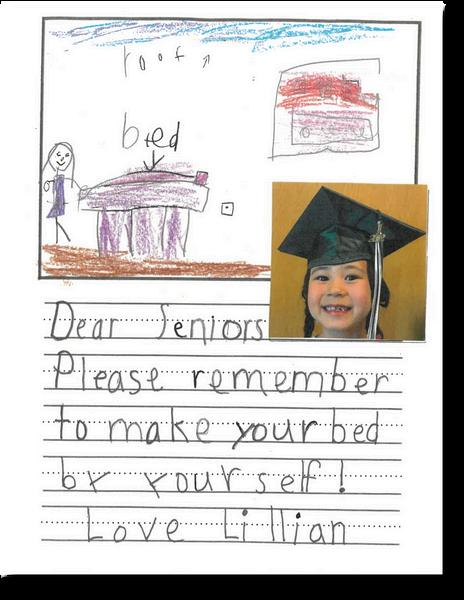 roof
bed
Dear Seniors
Please remember
to make your bed
by yourself!
Love Lillian